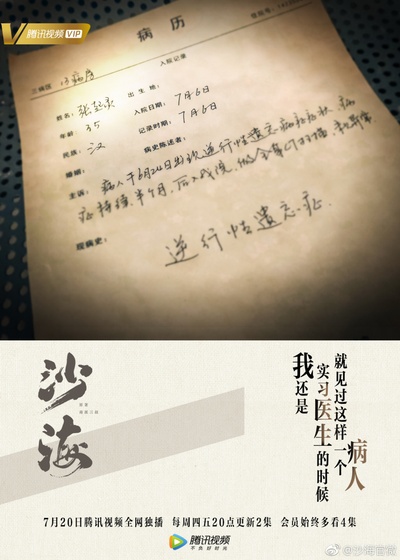 腾讯视频VIP
病历
登记号：
三病区
入院记录
姓名：张起灵
出生地：
年龄：35
入院日期：7月6日
民族：汉
记录时间：7月6日
婚姻：
病史陈述者：
主诉：病人于6月24日出现逆行性遗忘
症持续半个月，后入我院，
现病史：
逆行性遗忘症
沙海
我还是
实习医生的时候
就见过这样一个
病人
7月20日腾讯视频全网独播 每周四五20点更新2集 会员始终多看4集
腾讯视频
不负好时光
@沙海官微